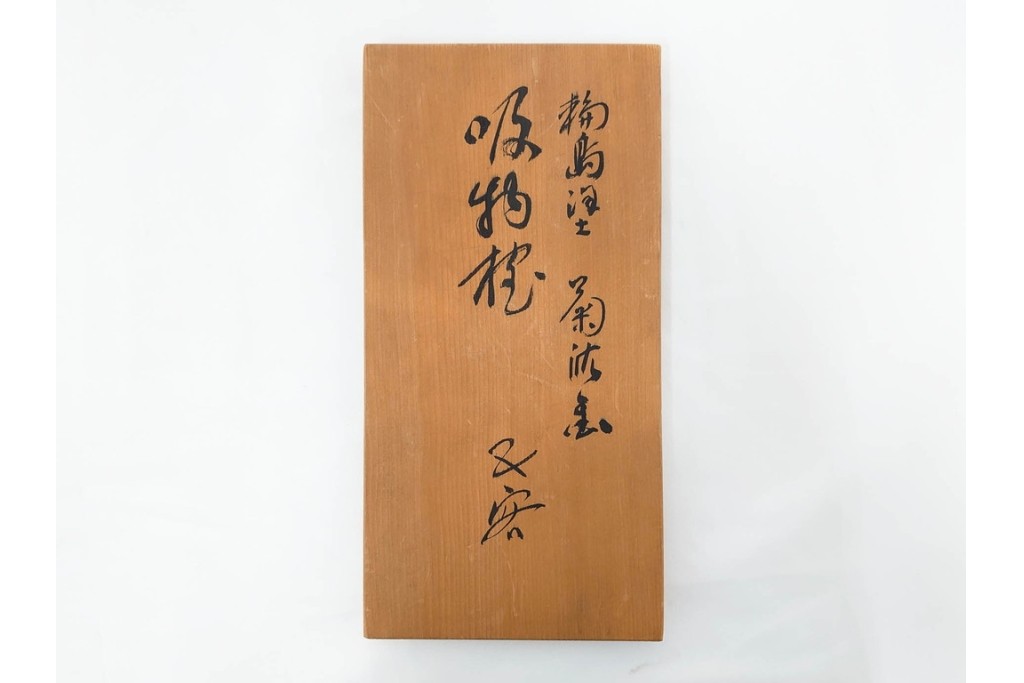 輪島塗 菊沈金
吸物椀 五客